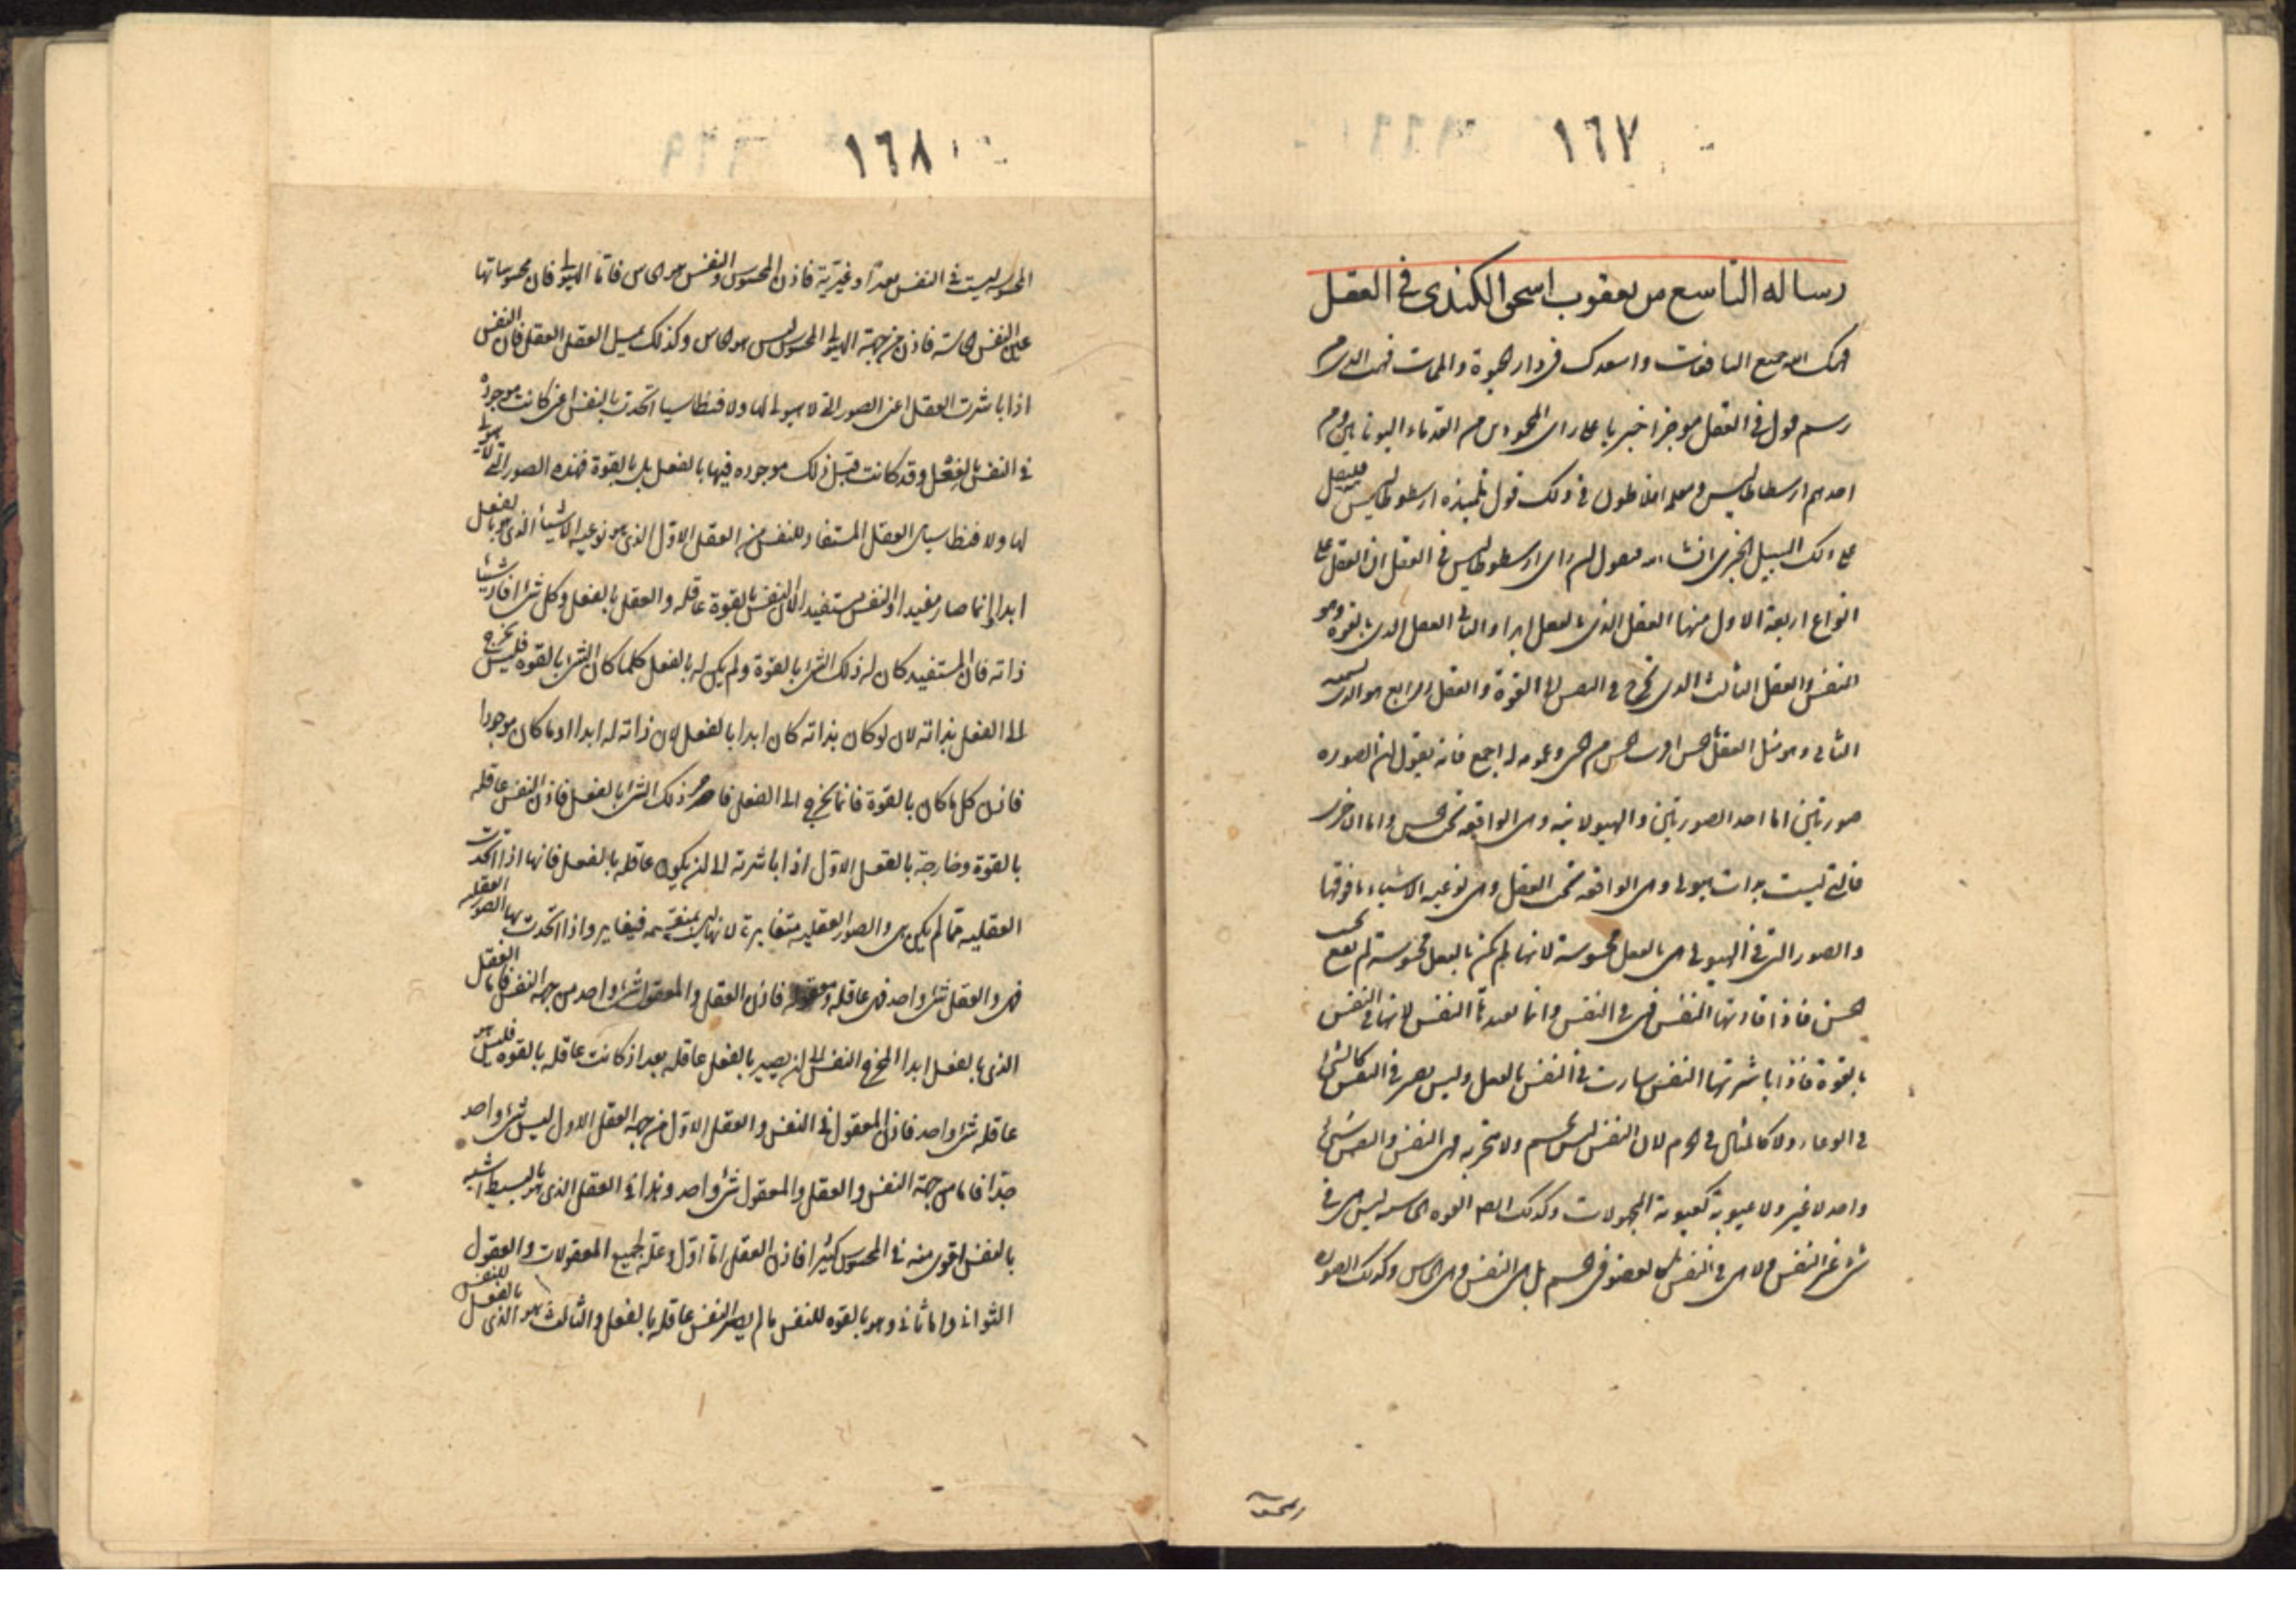 ١٦٧
رساله التاسع من يعقوب اسحق الكندى فى العقل
الله جميع النافعات واسعدك فى دار الحيوة والممات فهمت الذى
رسم قول فى العقل موجز اخبر يا على راى المحمودين من القدماء اليونانيين ومن
احدهم ارسطاطاليس ومعلمه افلاطون فى ذلك قول تلميذه ارسطوطاليس فليقل
على ذلك السبيل الخبرى فنقول ان راى ارسطوطاليس فى العقل ان العقل على
انواع اربعة الاول منها العقل الذى بالفعل ابدا والثانى العقل الذى بالقوه وهو
للنفس والعقل الثالث الذى يخرج فى النفس من القوة والعقل الرابع هو الذى نسميه
الثانى وهو مثل العقل بالحس لقرب الحس من الحى وعمومه له اجمع فانه يقول ان الصوره
صورتين اما احد الصورتين فالهيولانيه وهى الواقعه تحت الحس واما الاخرى
فالتى ليست بذات هيولى وهى الواقعه تحت العقل وهى نوعيه الاشياء وما فوقها
والصور التى فى الهيولى هى بالفعل محسوسة لانها لو لم تكن بالفعل محسوسة لم تقع تحت
الحس فاذا افادتها النفس فهى فى النفس وانما تفيدها النفس لانها فى النفس
بالقوة فاذا باشرتها النفس صارت فى النفس بالفعل وليس تصير فى النفس كالشئ
فى الوعاء ولا كالمثال فى الجرم لان النفس ليس بجسم ولا متجزيه فهى فى النفس والنفس شئ
واحد لا غير ولا غيريه كغيرية المحمولات وكذلك ايضا القوه الحاسه ليس هى فى
شئ غير النفس ولا هى فى النفس كالعضو فى الجسم بل هى النفس وهى الحاس وكذلك الصوره
١٦٨
المحسوسه ليست فى النفس بعدا وغيرية فاذن المحسوس فى النفس هو الحاس فاما الهيولى فان محسوساتها
غير النفس الحاسة فاذن من جهة الهيولى المحسوس ليس هو الحاس وكذلك يمثل العقل العقل فان النفس
اذا باشرت العقل اعنى الصور التى لا هيولى لها ولا فنطاسيا اتحدت بالنفس اعنى كانت موجودة
فى النفس بالفعل وقد كانت قبل ذلك موجوده فيها لا بالفعل بل بالقوة فهذه الصور التى لا هيولى
لها ولا فنطاسيا هى العقل المستفاد للنفس من العقل الاول الذى هو نوعيه الاشياء الذى هو بالفعل
ابدا وانما صار مفيدا والنفس مستفيدا لان النفس بالقوة عاقله والعقل بالفعل وكل شئ افاد شيئا
ذاته فان المستفيد كان له ذلك الشئ بالقوة ولم يكن له بالفعل كلما كان الشئ بالقوه فليس يخرج
الى الفعل بذاته لان لو كان بذاته كان ابدا بالفعل لان ذاته له ابدا وما كان موجودا
فاذن كل ما كان بالقوة فانما يخرج الى الفعل فاخر هو ذلك الشئ بالفعل فاذن النفس عاقله
بالقوة وخارجة بالعقل الاول اذا باشرته الى ان يكون عاقله بالفعل فانها اذا اتحدت
العقليه مما لم يكن هى والصور العقليه متغايرة لانها ليست بمنقسمه فيتغاير واذا اتحدت بها الصور العقليه
فهى والعقل شئ واحد فهى عاقله ومعقوله فاذن العقل والمعقول شئ واحد من جهة النفس فاما العقل
الذى بالفعل ابدا المخرج النفس الى ان يصير بالفعل عاقله بعد ان كانت عاقله بالقوه فليس هو
عاقله شئ واحد فاذن المعقول فى النفس والعقل الاول من جهة العقل الاول ليس شئ واحد
جدا فاما من جهة النفس والعقل والمعقول شئ واحد وهذا فى العقل الذى هو بالبسيط اشبه
بالنفس اقوى منه فى المحسوس كثيرا فاذن العقل اما اول وعلة لجميع المعقولات والعقول
الثوانى واما ثانى وهو بالقوه للنفس ما لم يصير النفس عاقله بالفعل والثالث هو الذى بالفعل للنفس